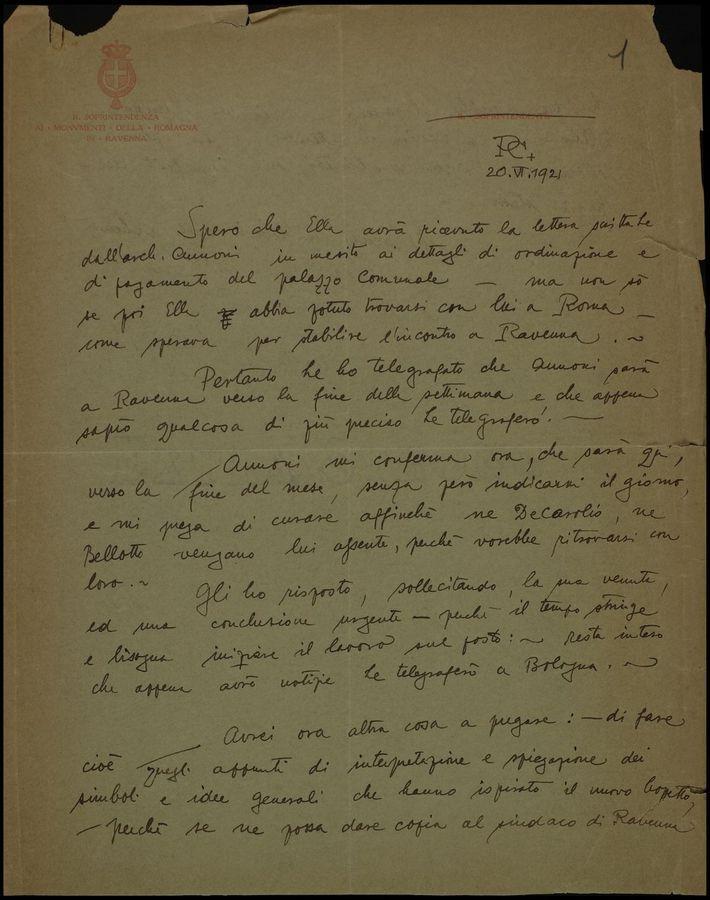 1
R. SOPRINTENDENZA
AI · MONVMENTI · DELLA · ROMAGNA
IN · RAVENNA
IL SOPRINTENDENTE
20.VI.1921
Spero che Ella avrà ricevuto la lettera scittale
dall'arch. Annoni in merito ai dettagli di ordinazione e
di pagamento del palazzo Comunale — ma non sò
se poi Ella abbia potuto trovarsi con lui a Roma —
come sperava per stabilire l'incontro a Ravenna. ~
Pertanto Le ho telegrafato che Annoni sarà
a Ravenna verso la fine della settimana e che appena
saprò qualcosa di più preciso Le telegraferò. —
Annoni mi conferma ora, che sarà qui,
verso la fine del mese, senza però indicarmi il giorno,
e mi prega di curare affinchè ne DeCarolis, ne
Bellotto vengano lui assente, perchè vorrebbe ritrovarsi con
loro. ~ Gli ho risposto, sollecitando, la sua venuta,
ed una conclusione urgente — perchè il tempo stringe
e bisogna iniziare il lavoro sul posto: ~ resta inteso
che appena avrò notizie Le telegraferò a Bologna. ~
Avrei ora altra cosa a pregare: — di fare
cioè quegli appunti di interpretazione e spiegazione dei
simboli e idee generali che hanno ispirato il nuovo bozzetto,
— perchè se ne possa dare copia al sindaco di Ravenna